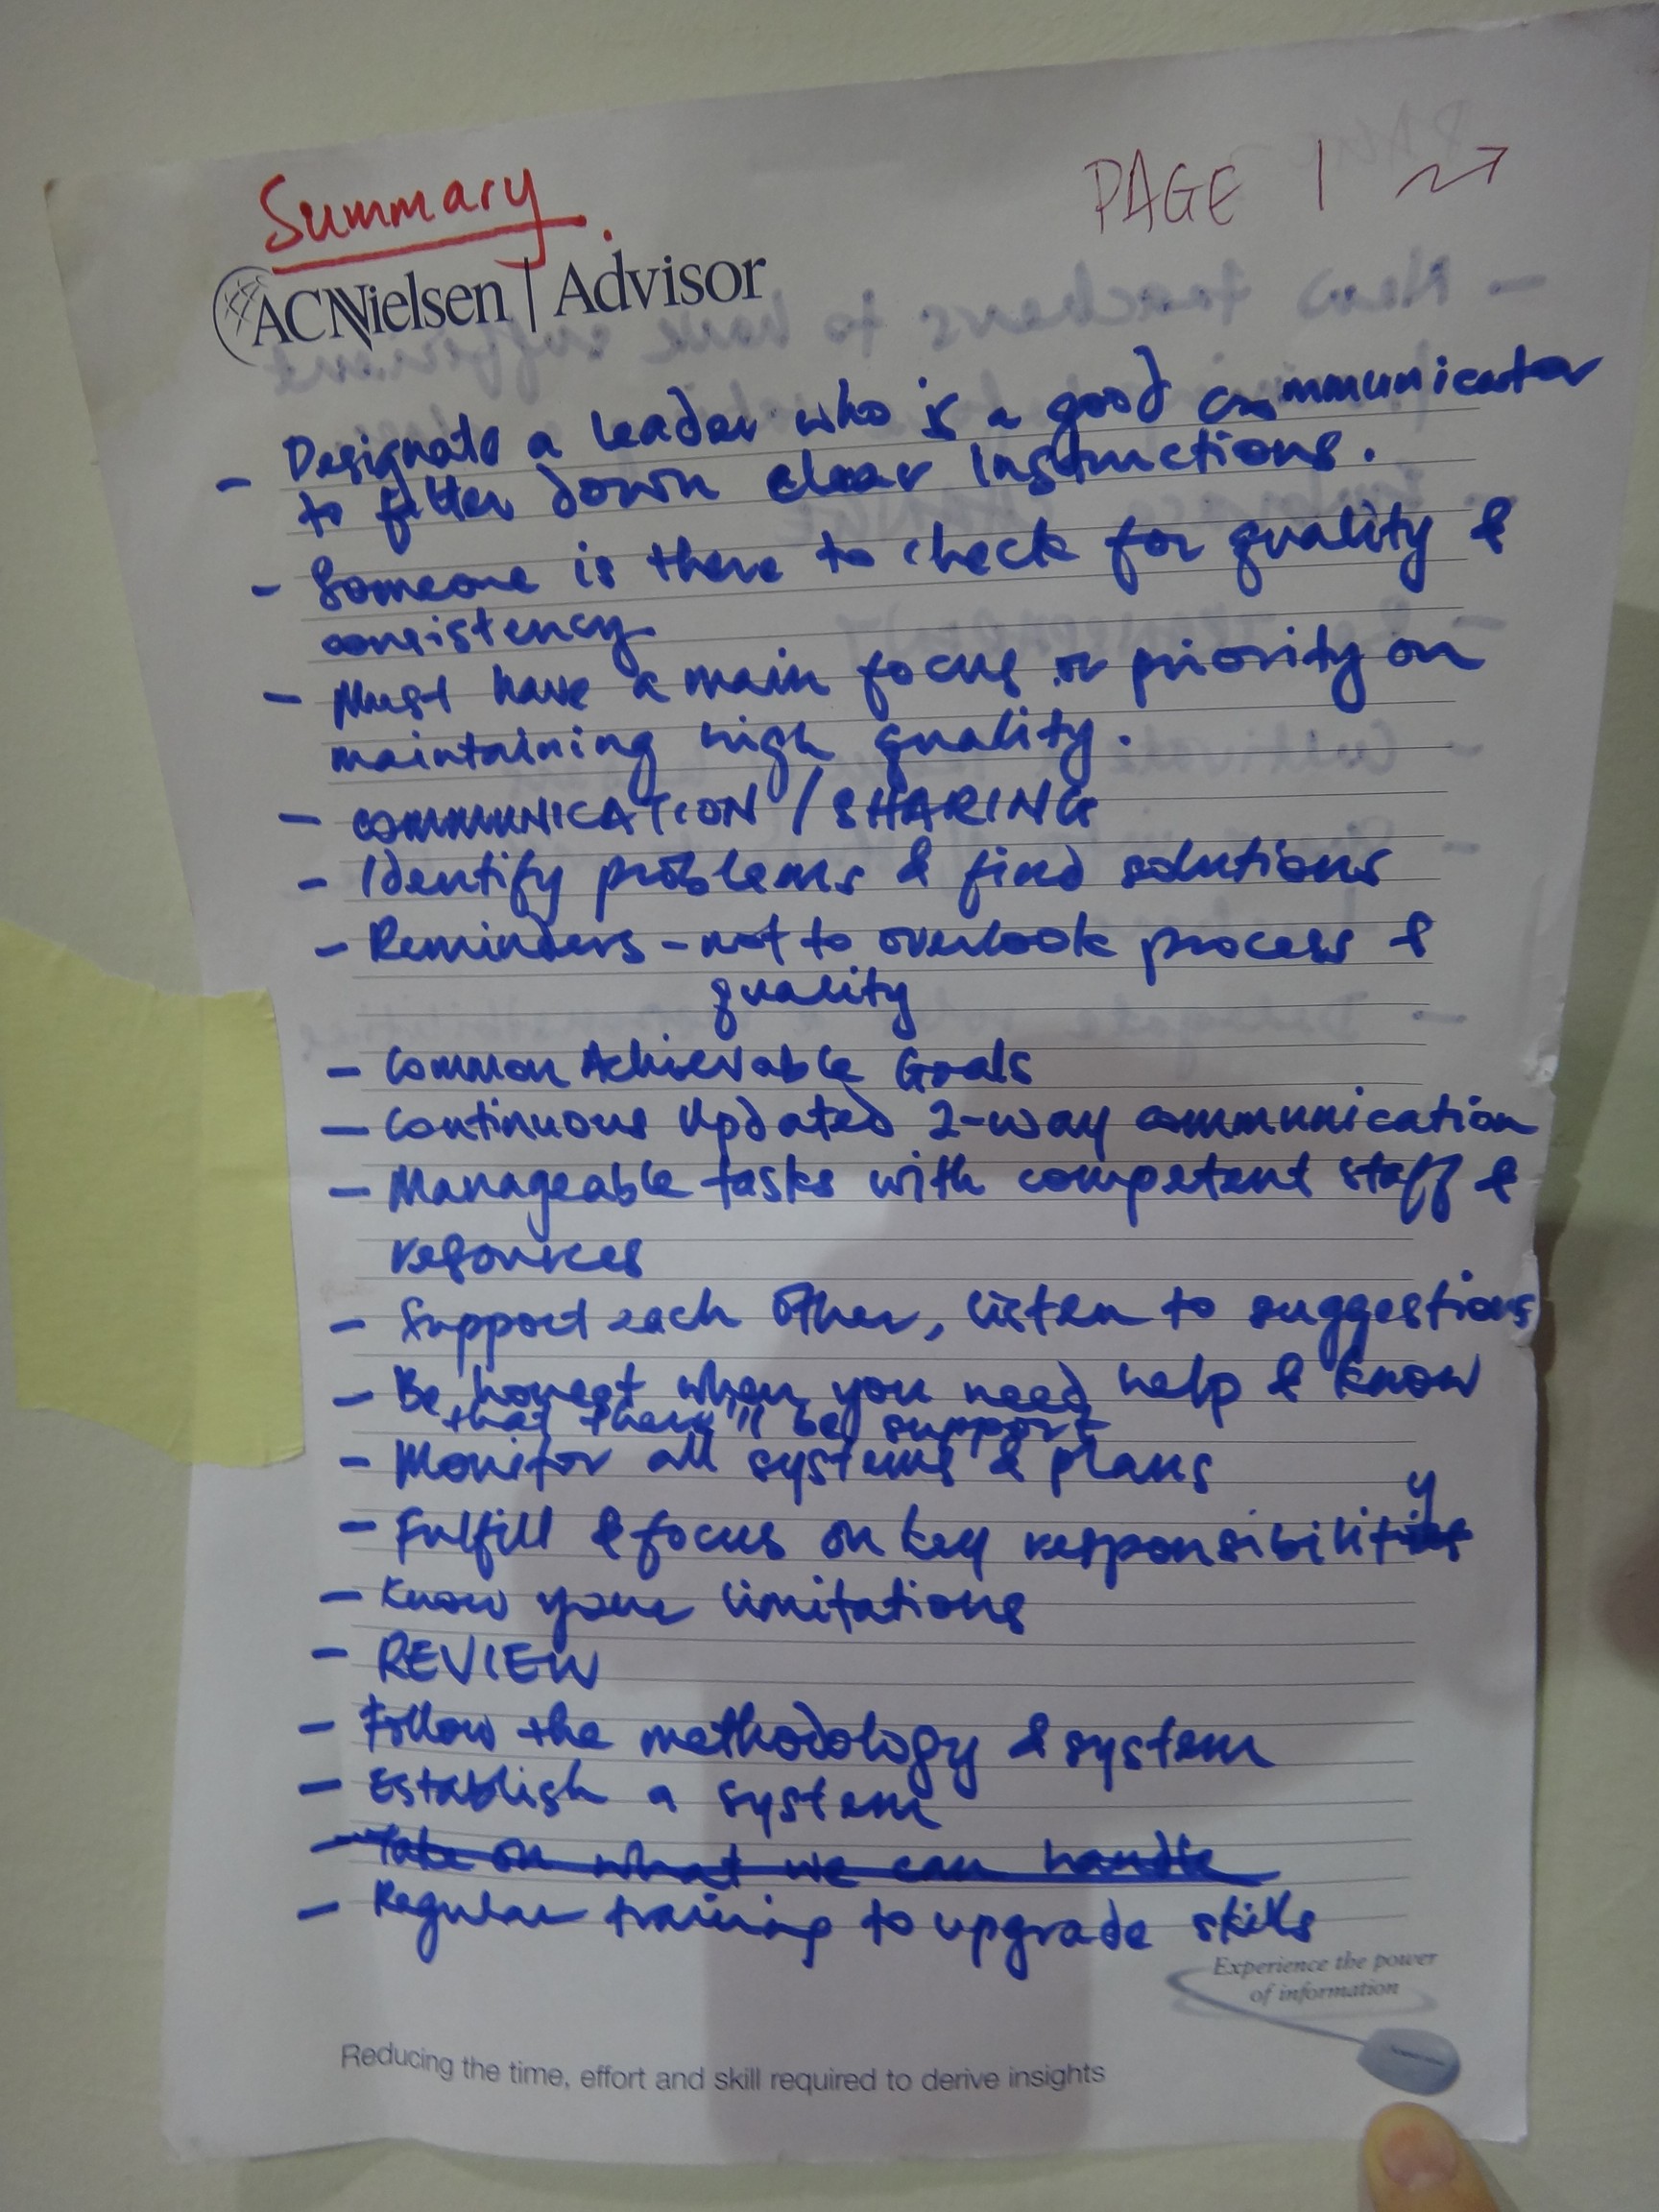 Summary.
PAGE 1
ACNielsen | Advisor
- Designate a leader who is a good communicator
to filter down clear instructions.
- Someone is there to check for quality &
consistency
- Must have a main focus or priority on
maintaining high quality.
- COMMUNICATION / SHARING
- Identify problems & find solutions
- Reminders - not to overlook process &
quality
- Common Achievable Goals
- Continuous Updated 2-way communication
- Manageable tasks with competent staff &
resources
- Support each other, listen to suggestions
- Be honest when you need help & know
that there'll be support
- Monitor all systems & plans
- Fulfill & focus on key responsibility
- Know your limitations
- REVIEW
- Follow the methodology & system
- Establish a system
- Take on what we can handle
- Regular training to upgrade skills
Experience the power
of information
Reducing the time, effort and skill required to derive insights